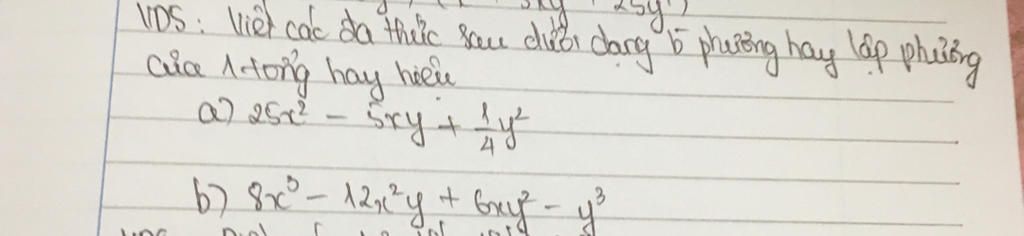 VD5: Viết các đa thức sau dưới dạng b phương hay lập phương
của 1 tổng hay hiệu
a) 25x² - 5xy + 1/4 y²
b) 8x³ - 12x²y + 6xy² - y³